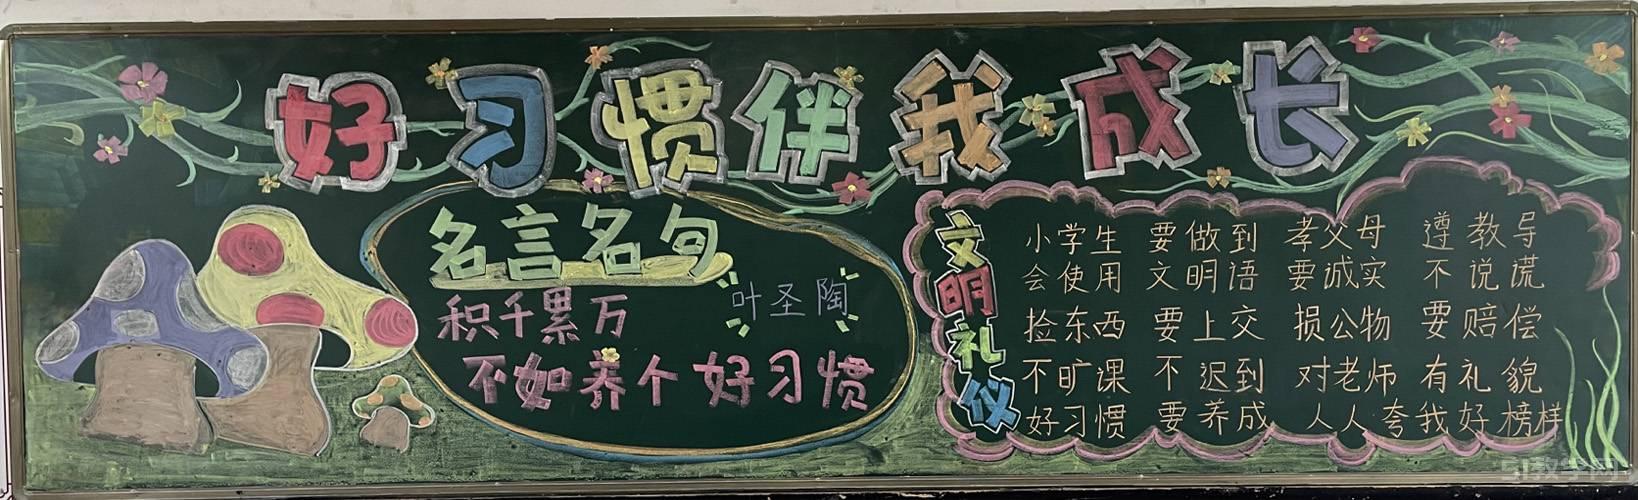 好习惯伴我成长
名言名句
叶圣陶
积千累万
不如养个好习惯
文明礼仪
小学生 要做到 孝父母 遵教导
会使用 文明语 要诚实 不说谎
捡东西 要上交 损公物 要赔偿
不旷课 不迟到 对老师 有礼貌
好习惯 要养成 人人夸我好榜样
51教学网